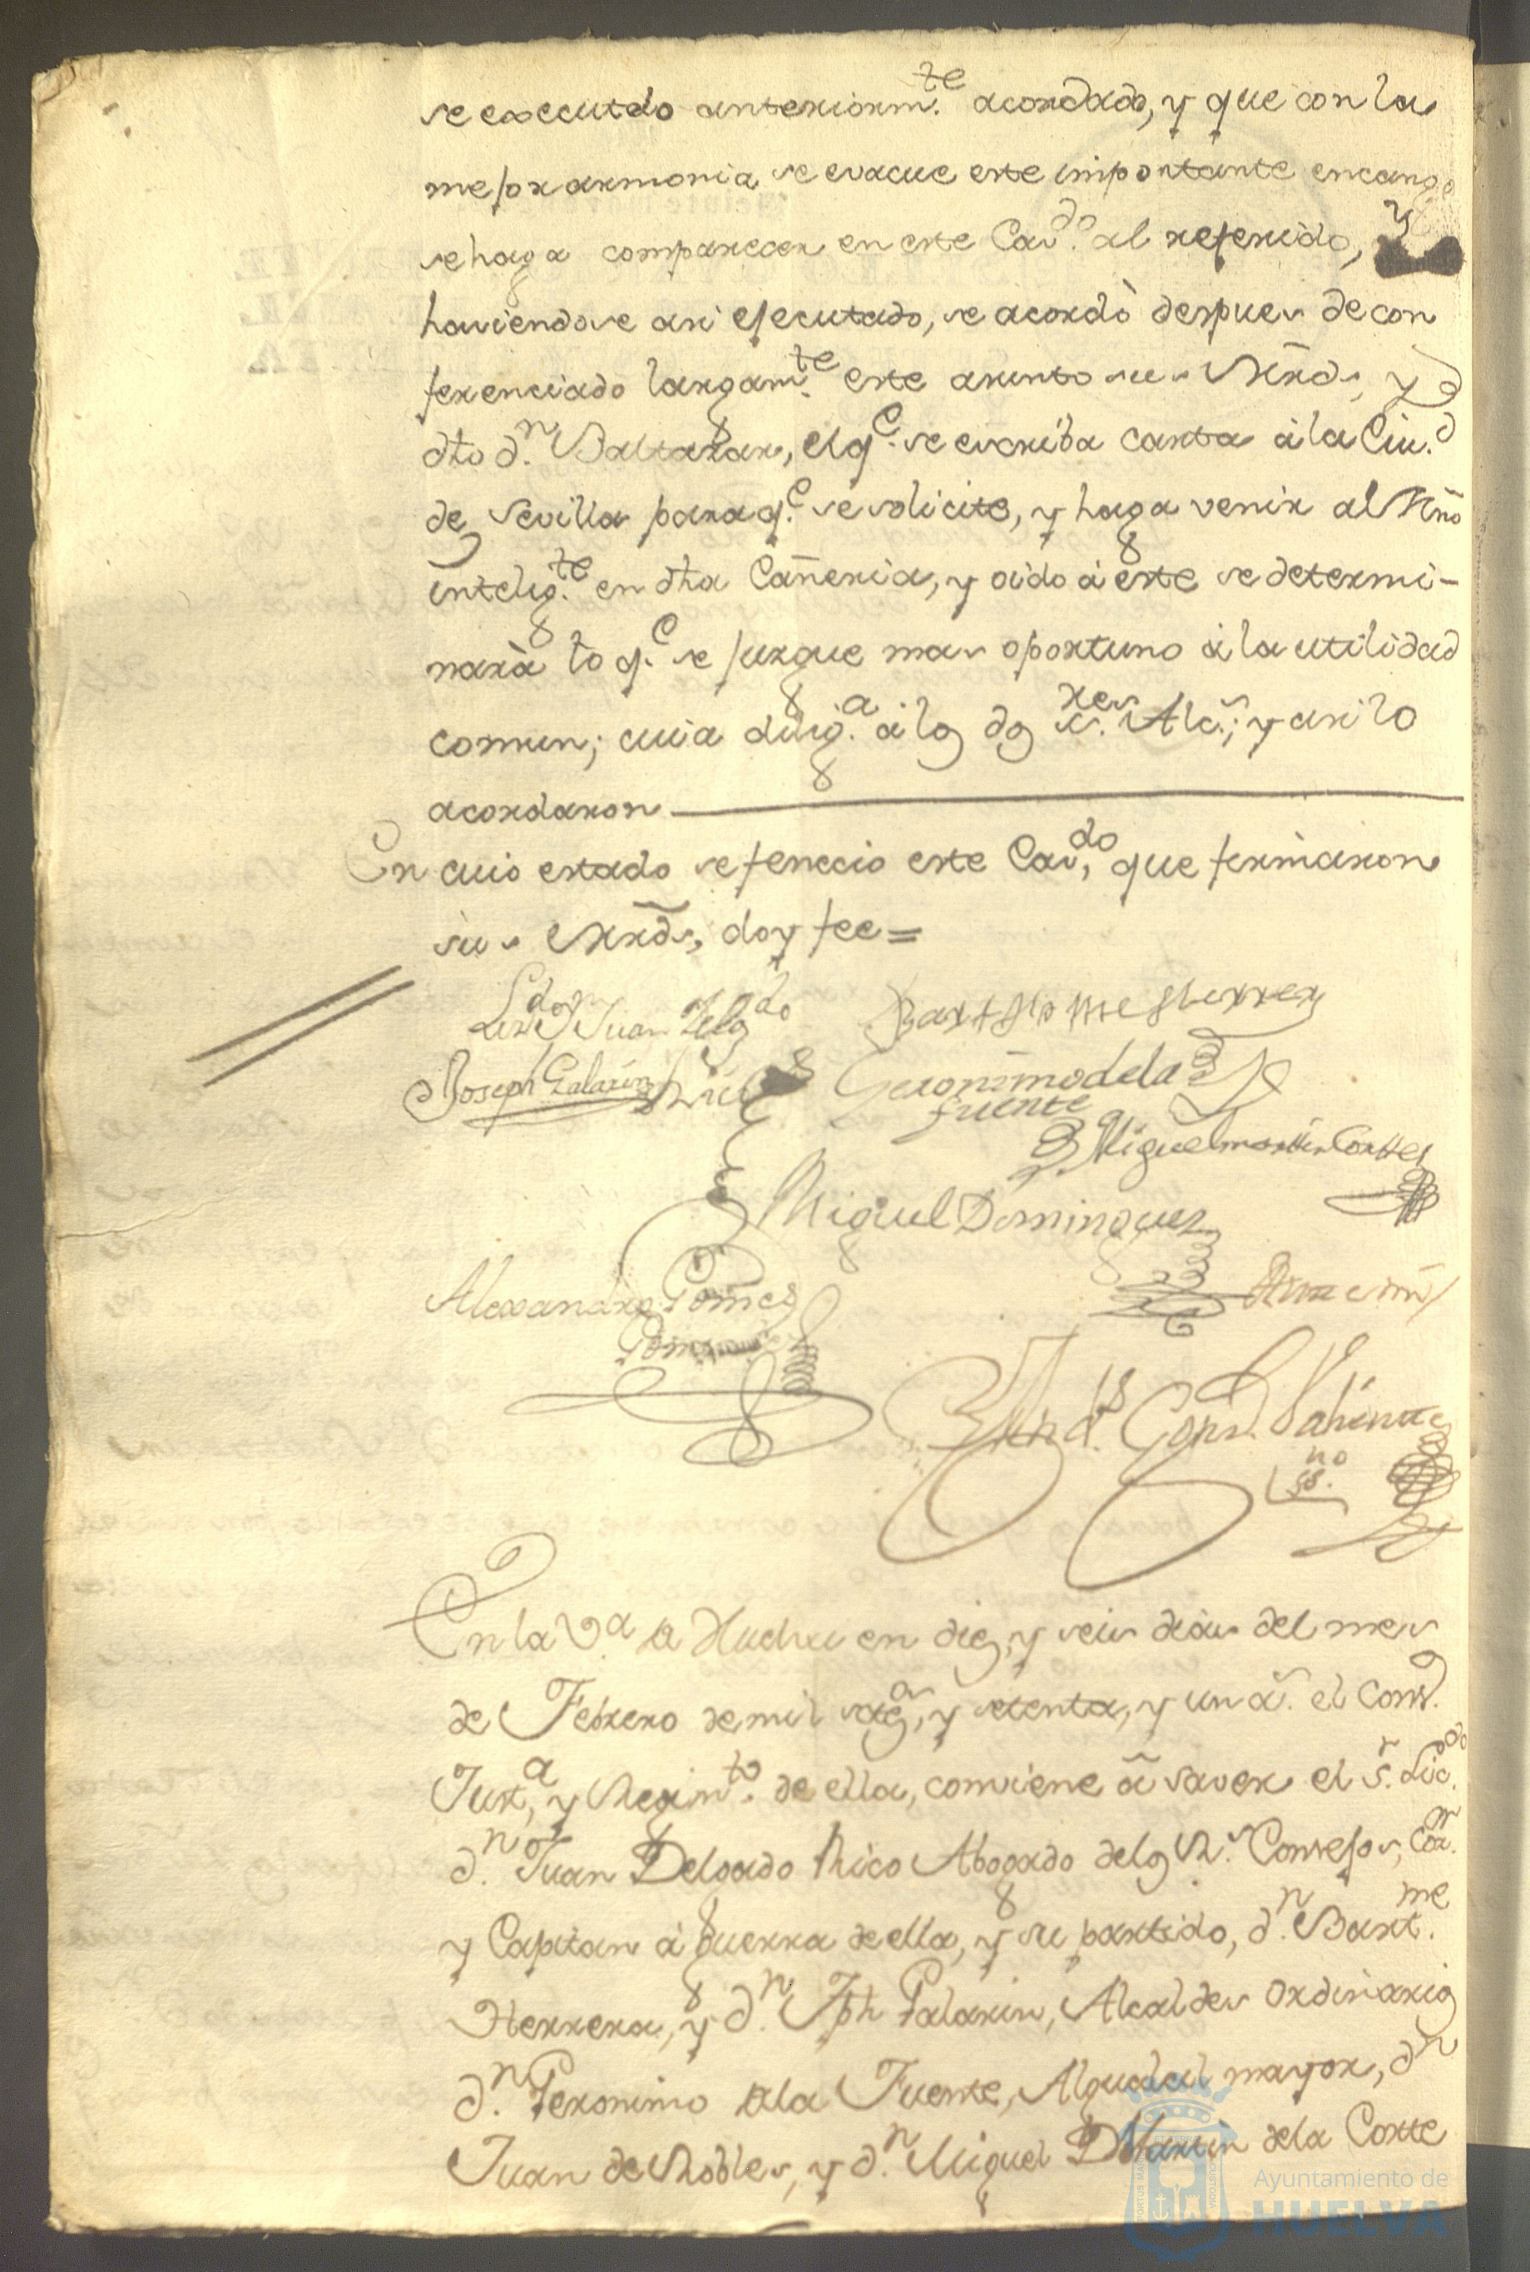 se executdo anteriorm.te acordado, y que con la
mejor armonia se evacue este importante encargo
se haga comparecer en este Cav.do al referido, y
haviendose asi ejecutado, se acordò despues de con
ferenciado largam.te este asunto sus Mrds, y
dho d.n Baltazar, el q.e se escriba carta à la Ciu.d
de Sevilla para q.e se solicite, y haga venir al Mrō
intelig.te en dha Cañeria, y oido à este se determi-
narà lo q.e se juzgue mas oportuno à la utilidad
comun; cuia dilig.a
acordaron
En cuio estado se fenecio este Cav.do, que firmaron
sus Mrds, doy fee =
Lizdo Dn Juan Delgdo Bartholome Herrera
Joseph Galarin Rico Geronimo de la
fuente
Miguel martin Cortte
Miguel Dominguez
Alexandro Gomes
Ante mi
Gonz.
ssno
En la V.a de Huelva en diez, y seis dias del mes
de Febrero de mil setes, y setenta, y un a.s el Conss.
Just.a, y Regim.to de ella, conviene à saver el s.r Lic.do
d.n Juan Delgado Rico Abogado de los R.s Consejos, Cor.or
y Capitan à guerra de ella, y su partido, d.n Bart.me
Herrera, y d.n Jph Galarin, Alcaldes ordinarios
d.n Geronimo de la Fuente, Alguacil mayor, d.n
Juan de Robles, y d.n Miguel Martin de la Corte
Ayuntamiento de
HUELVA